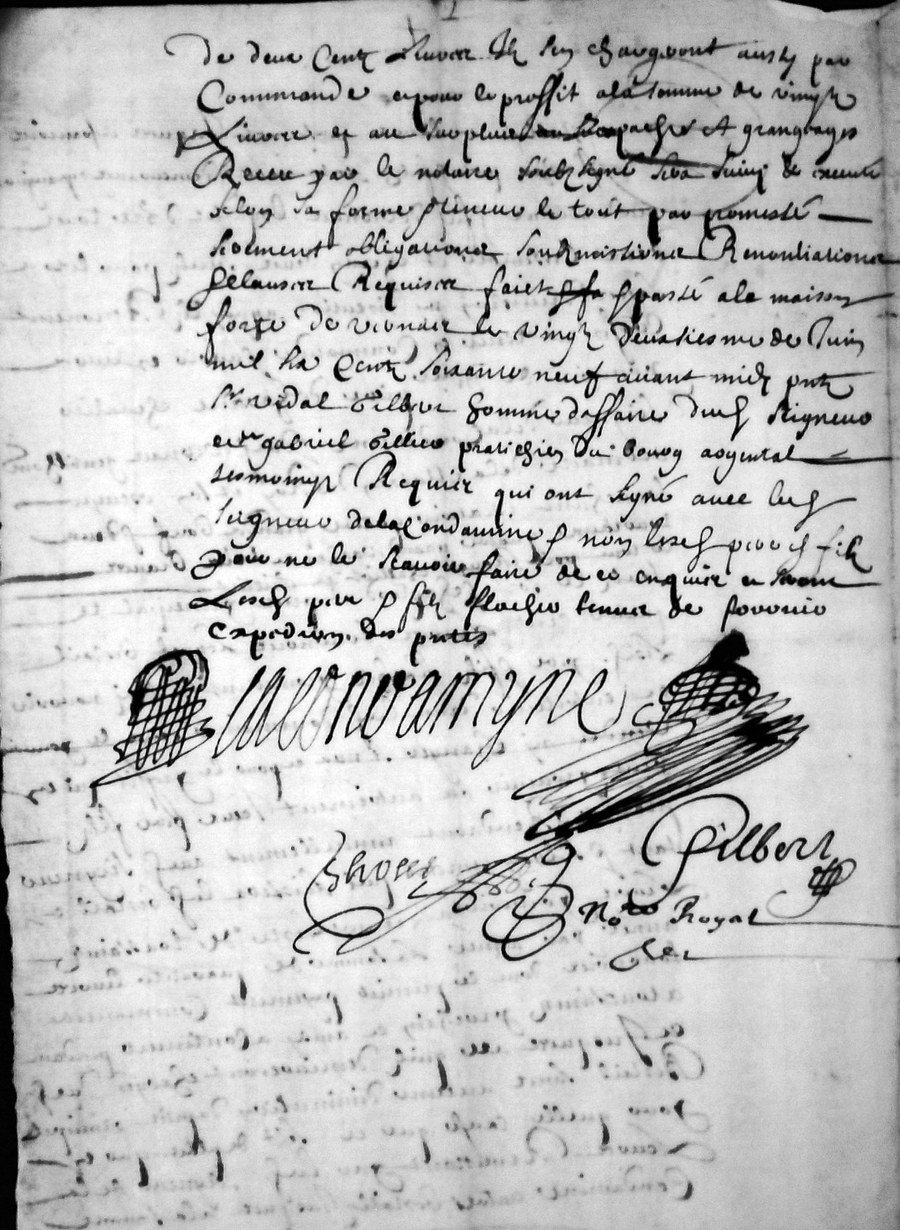 de deux Centz livres Ilz sen chargeront aussy par
Commande et pour le proffit a la somme de vingt
Livres et au surplus paches et grangeages
Receu par le notaire soubzsigné sera suivy & execute
selon sa forme & teneur le tout par promesse
serement obligations soubmissions Renontiations
& clauses Requises faict & passé a la maison
forte de le vingt deuxiesme de Juin
mil six Centz soixante neuf avant midy pntz
sr vidal Gilbert homme daffaire dud seigneur
et mr gabriel praticien du bourg argental
tesmoings Requis qui ont signé avec led
seigneur de la Condamine & non lesd pere & filz
pour ne le scavoir faire de ce enquis et
Lesd pere & filz tenus de fornir
expedition des pntes
Lacondamyne
Gilbert
Nore Royal